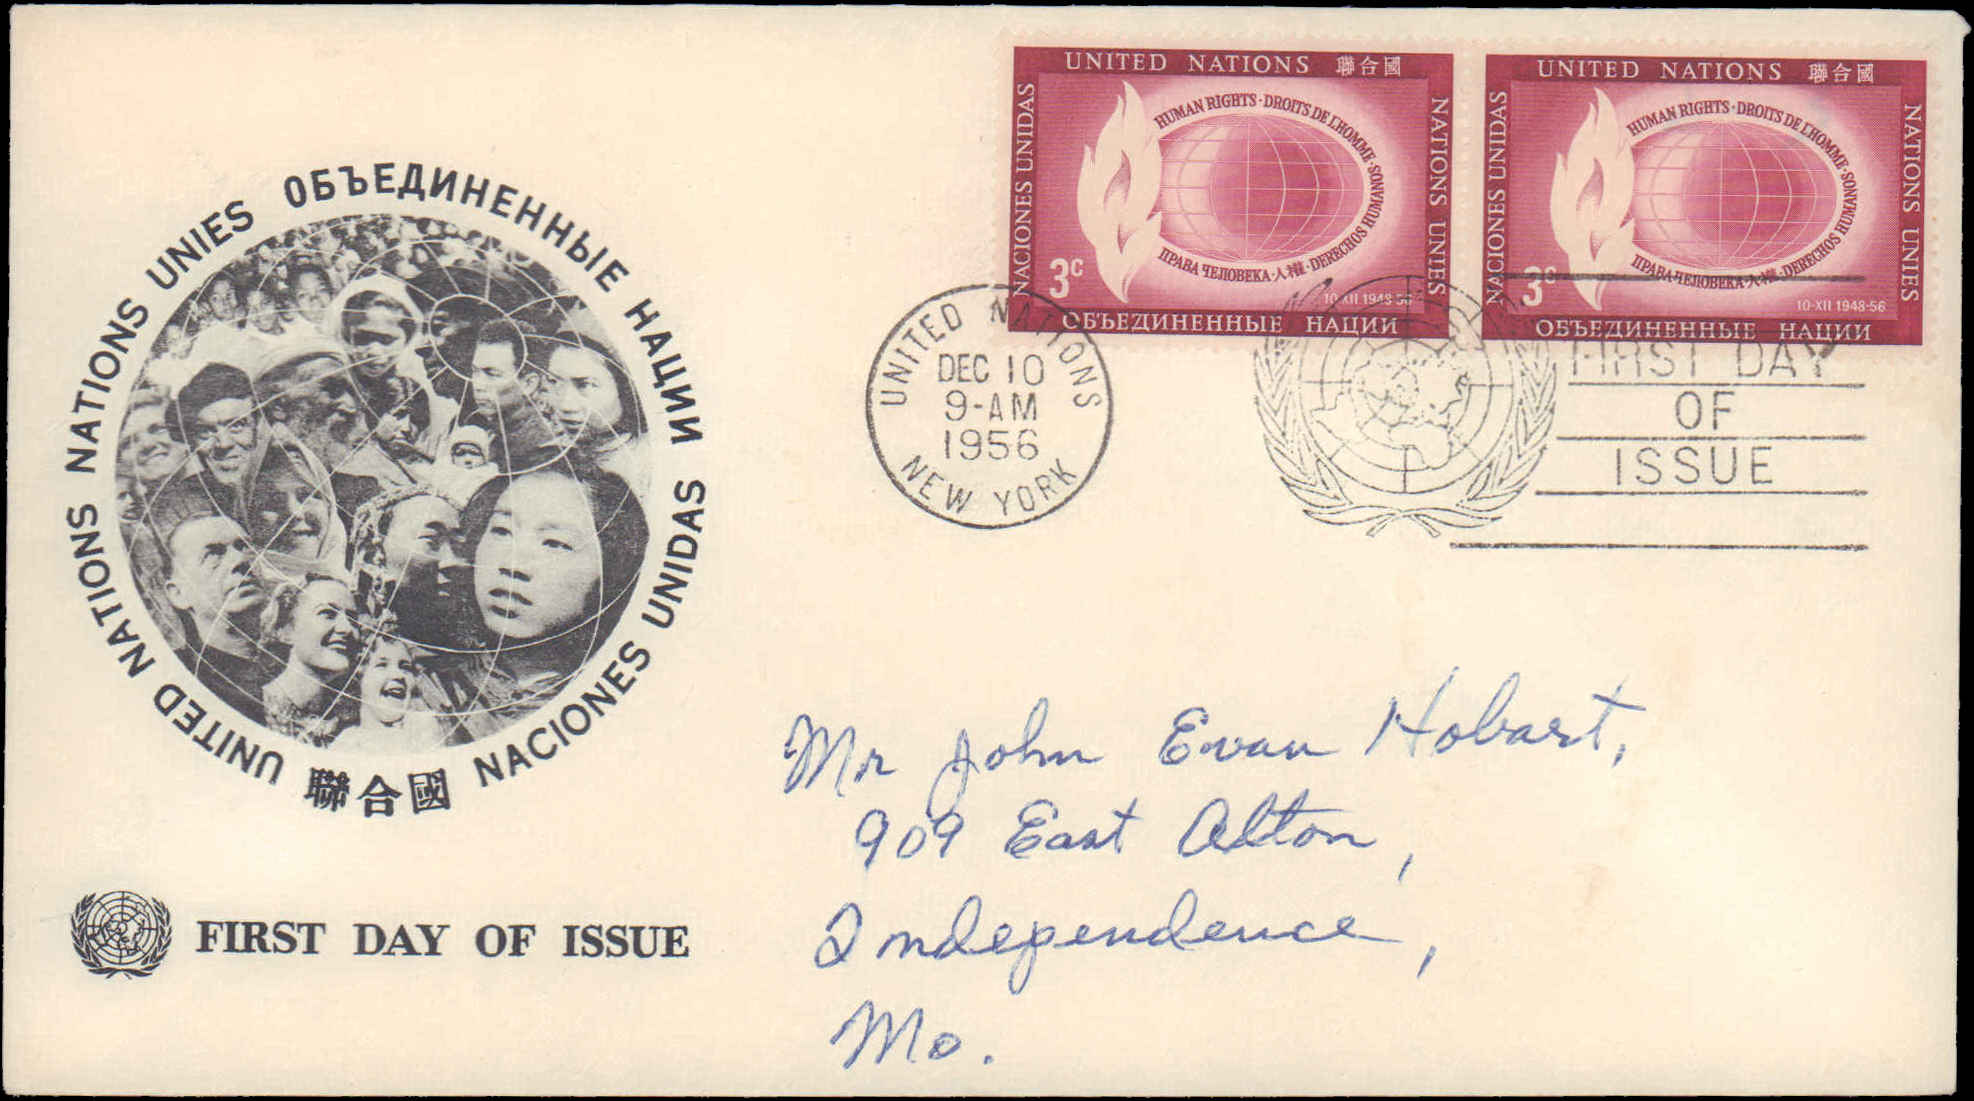 UNITED NATIONS NATIONS UNIES ОБЪЕДИНЕННЫЕ НАЦИИ
聯合國 NACIONES UNIDAS
FIRST DAY OF ISSUE
UNITED NATIONS 聯合國
NACIONES UNIDAS
HUMAN RIGHTS · DROITS DE L'HOMME · DERECHOS HUMANOS
ПРАВА ЧЕЛОВЕКА · 人權 ·
NATIONS UNIES
3c
10-XII 1948-56
ОБЪЕДИНЕННЫЕ НАЦИИ
UNITED NATIONS 聯合國
NACIONES UNIDAS
HUMAN RIGHTS · DROITS DE L'HOMME · DERECHOS HUMANOS
ПРАВА ЧЕЛОВЕКА · 人權 ·
NATIONS UNIES
3c
10-XII 1948-56
ОБЪЕДИНЕННЫЕ НАЦИИ
UNITED NATIONS
DEC 10
9-AM
1956
NEW YORK
FIRST DAY
OF
ISSUE
Mr John Evan Hobart,
909 East Alton,
Independence,
Mo.